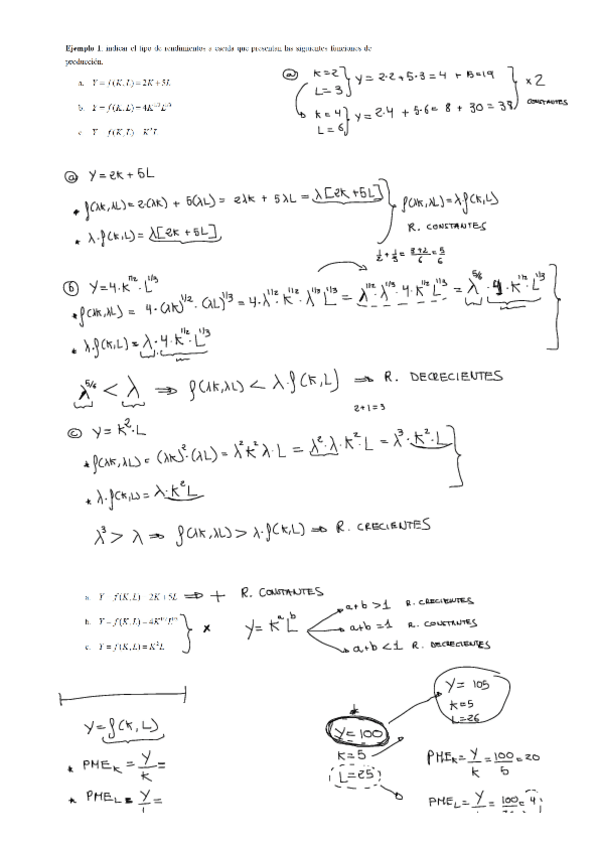 Ejemplo 1. indicar el tipo de rendimientos a escala que presentan las siguientes funciones de
producción.
a. Y = f(K,L) = 2K + 5L
b. Y = f(K,L) = 4K^1/2 L^1/3
c. Y = f(K,L) = K²L
ⓐ K=2 L=3 } Y = 2·2 + 5·3 = 4 + 15 = 19
K=4 L=6 } Y = 2·4 + 5·6 = 8 + 30 = 38
x 2
CONSTANTES
ⓐ Y = 2K + 5L
* f(λK,λL) = 2(λK) + 5(λL) = 2λK + 5λL = λ[2K+5L]
* λ·f(K,L) = λ[2K+5L]
f(λK,λL) = λf(K,L)
R. CONSTANTES
1/2 + 1/3 = 3+2/6 = 5/6
ⓑ Y = 4·K^1/2·L^1/3
* f(λK,λL) = 4·(λK)^1/2·(λL)^1/3 = 4·λ^1/2·K^1/2·λ^1/3 L^1/3 = λ^1/2·λ^1/3·4·K^1/2 L^1/3 = λ^5/6·4·K^1/2·L^1/3
* λ·f(K,L) = λ·4·K^1/2·L^1/3
λ^5/6 < λ ⇒ f(λK,λL) < λ·f(K,L) ⇒ R. DECRECIENTES
2+1=3
ⓒ Y = K²·L
* f(λK,λL) = (λK)²·(λL) = λ²K²λ·L = λ²·λ·K²·L = λ³·K²·L
* λ·f(K,L) = λ·K²L
λ³ > λ ⇒ f(λK,λL) > λ·f(K,L) ⇒ R. CRECIENTES
a. Y = f(K,L) = 2K + 5L ⇒ + R. CONSTANTES
b. Y = f(K,L) = 4K^1/2 L^1/3
c. Y = f(K,L) = K²L
x Y = K^a L^b
a+b >1 R. CRECIENTES
a+b =1 R. CONSTANTES
a+b <1 R. DECRECIENTES
Y = f(K,L)
* PMEK = Y/K =
* PMEL = Y/L =
Y=100
K=5
L=25
Y= 105
K=5
L=26
PMEK = Y/K = 100/5 = 20
PMEL = Y/ = 100/ = 4